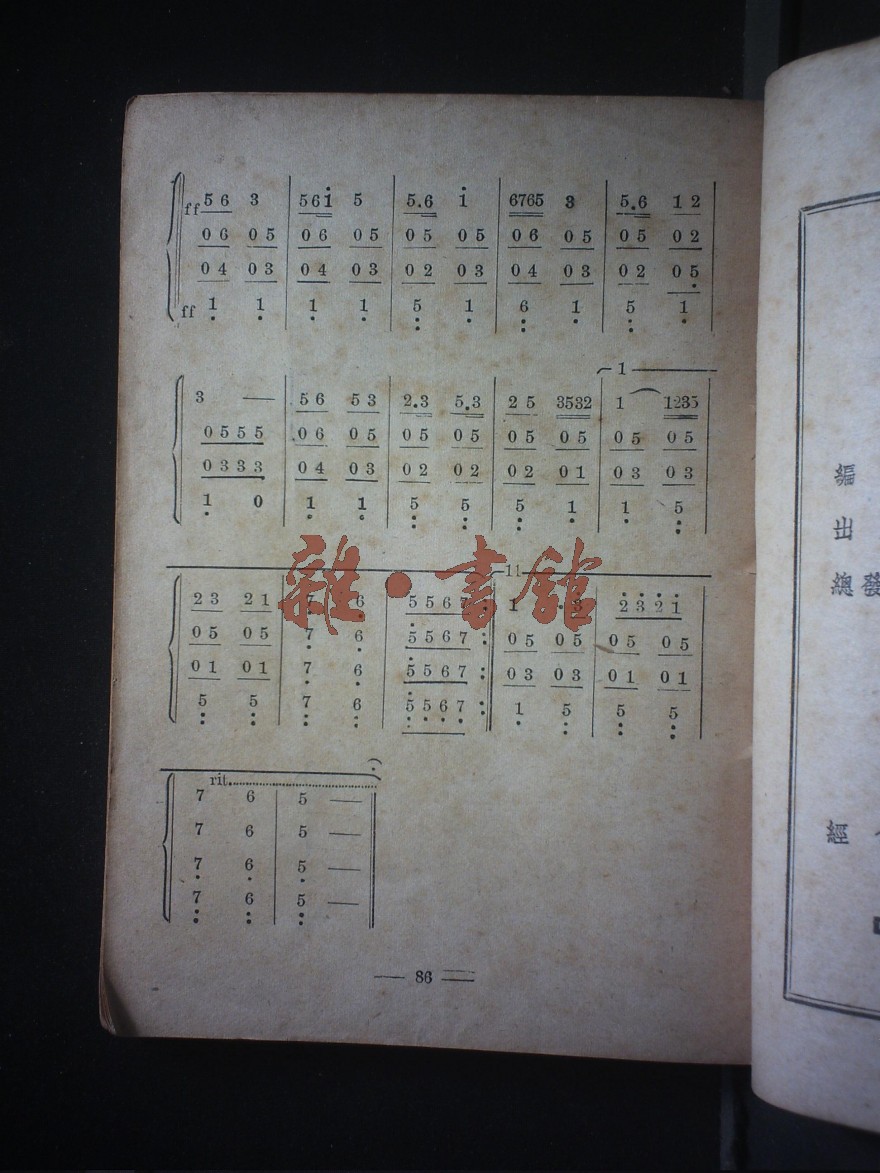 ff 5 6 3 | 5 6 i 5 | 5.6 i | 6765 3 | 5.6 1 2
0 6 0 5 | 0 6 0 5 | 0 5 0 5 | 0 6 0 5 | 0 5 0 2
0 4 0 3 | 0 4 0 3 | 0 2 0 3 | 0 4 0 3 | 0 2 0 5
ff 1 1 | 1 1 | 5 1 | 6 1 | 5 1
1
3 — | 5 6 5 3 | 2.3 5.3 | 2 5 3532 | 1 1235
0 5 5 5 | 0 6 0 5 | 0 5 0 5 | 0 5 0 5 | 0 5 0 5
0 3 3 3 | 0 4 0 3 | 0 2 0 2 | 0 2 0 1 | 0 3 0 3
1 0 | 1 1 | 5 5 | 5 1 | 1 5
11
2 3 2 1 | 7 6 | 5 5 6 7 : 1 . 3 | 2 3 2 1
0 5 0 5 | 7 6 | 5 5 6 7 : 0 5 0 5 | 0 5 0 5
0 1 0 1 | 7 6 | 5 5 6 7 : 0 3 0 3 | 0 1 0 1
5 5 | 7 6 | 5 5 6 7 : 1 5 | 5 5
rit.
7 6 | 5 —
7 6 | 5 —
7 6 | 5 —
7 6 | 5 —
— 86 —
雜·書館
編
出
總 發
經